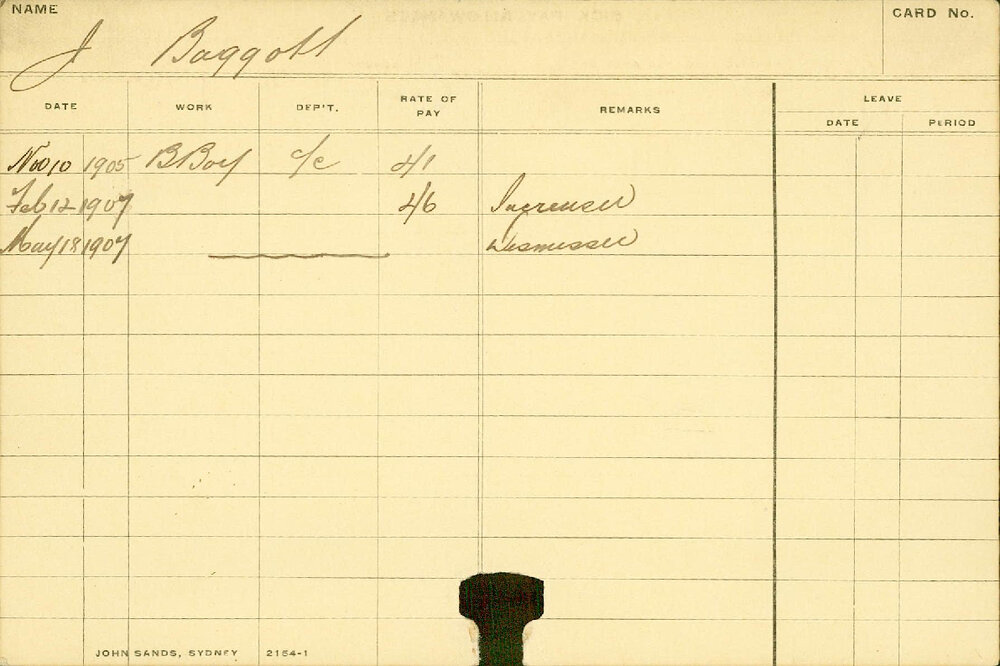 NAME
CARD No.
J Baggott
DATE WORK DEP'T. RATE OF PAY REMARKS LEAVE
DATE PERIOD
Nov 10 1905 B Boy c/c 4/1
Feb 12 1907 4/6 Increased
May 18 1907 Dismissed
JOHN SANDS, SYDNEY 2154-1